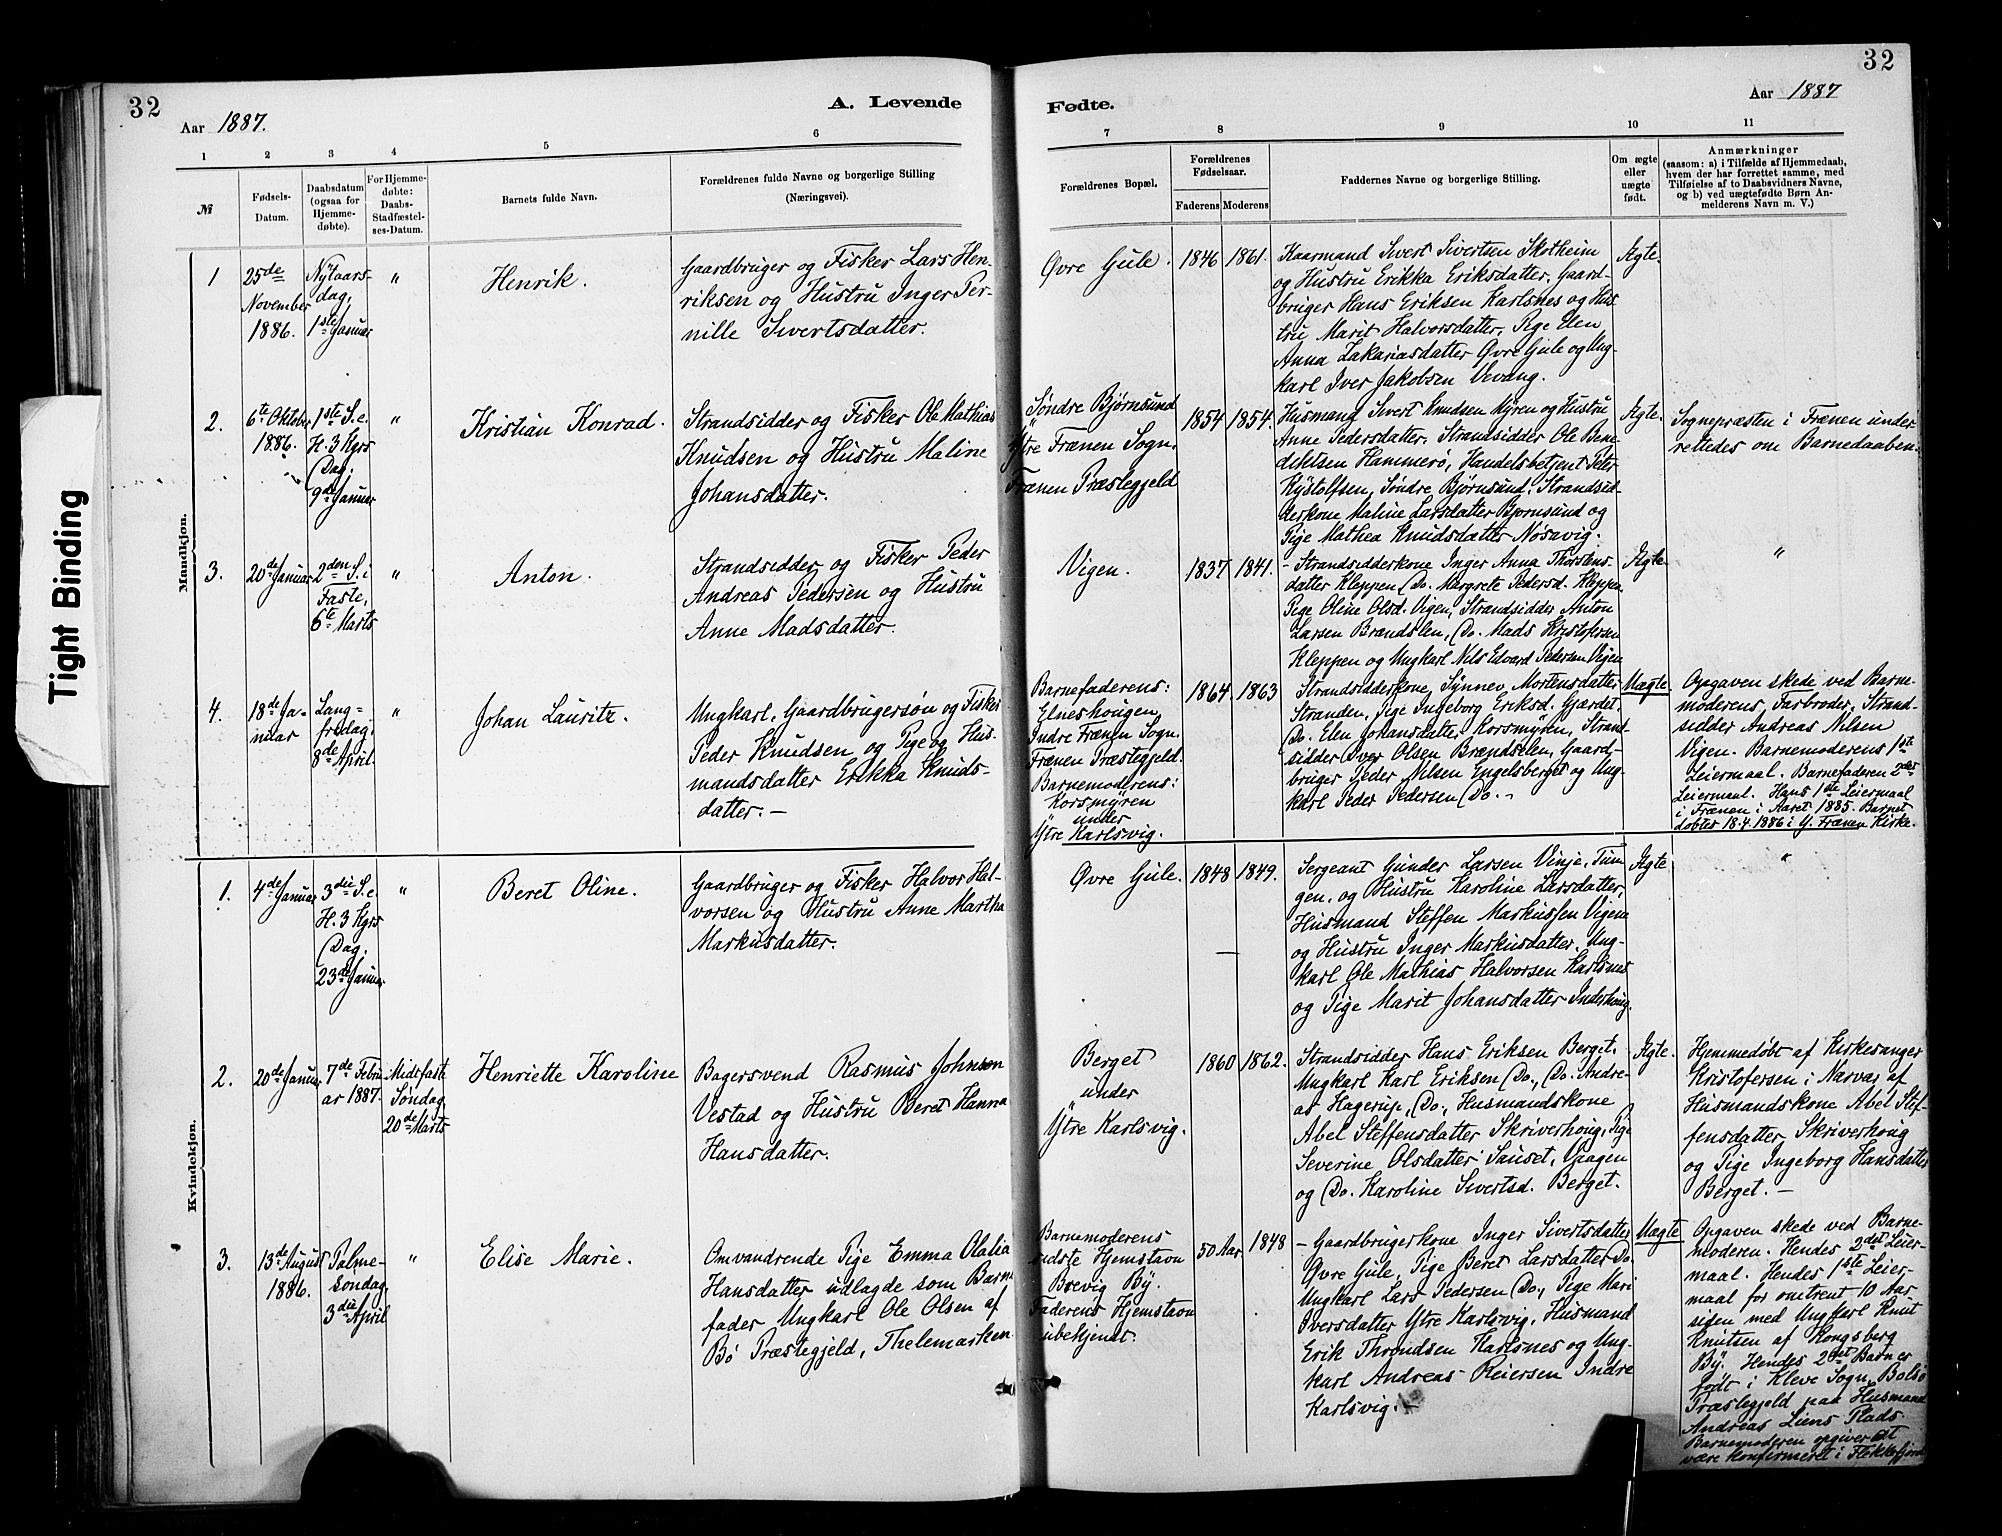 32
A. Levende
Aar 1887.
1 2 3 4 5 6
№
Fødsels-
Datum.
Daabsdatum
(ogsaa for
Hjemme-
døbte).
For Hjemme-
døbte:
Daabs-
Stadfæstel-
ses-Datum.
Barnets fulde Navn.
Forældrenes fulde Navne og borgerlige Stilling
(Næringsvei).
Mandkjøn.
1
25de
November
1886.
Nytaars-
dag,
1ste Januar
"
Henrik.
Gaardbruger og Fisker Lars Hen-
riksen og Hustru Inger Per-
nille Sivertsdatter.
2.
6te Oktober
1886.
1ste S. e.
H. 3 Kgrs
Dag,
9de Januar
"
Kristian Konrad.
Strandsidder og Fisker Ole Mathias
Knudsen og Hustru Maline
Johansdatter.
3.
20de Januar
2den S. i
Faste,
6te Marts
"
Anton.
Strandsidder og Fisker Peder
Andreas Pedersen og Hustru
Anne Madsdatter.
4.
18de Ja-
nuar
Lang-
fredag,
8de April.
"
Johan Lauritz.
Ungkarl, Gaardbrugersøn og Fisker
Peder Knudsen og Pige og Hus-
mandsdatter Erikka Knuds-
datter. —
Kvindekjøn.
1.
4de Januar
3die S. e
H. 3 Kgrs
Dag,
23de Januar
"
Beret Oline.
Gaardbruger og Fisker Halvor Hal-
vorsen og Hustru Anne Martha
Markusdatter.
2.
20de Januar
7de Febru-
ar 1887.
Midfaste
Søndag,
20de Marts
Henriette Karoline
Bagersvend Rasmus Johnsen
Vestad og Hustru Beret Hanna
Hansdatter.
3.
13de August
1886.
Palme-
søndag,
3die April
"
Elise Marie.
Omvandrende Pige Emma Olalia
Hansdatter udlagde som Barne-
fader Ungkarl Ole Olsen af
Bø Præstegjeld, Thelemarken
32
Fødte.
Aar 1887
7 8 9 10 11
Forældrenes Bopæl.
Forældrenes
Fødselsaar.
Faderens Moderens
Faddernes Navne og borgerlige Stilling.
Om ægte
eller
uægte
født.
Anmærkninger
(saasom: a) i Tilfælde af Hjemmedaab,
hvem der har forrettet samme, med
Tilføielse af to Daabsvidners Navne,
og b) ved uægtefødte Børn An-
melderens Navn m. V.)
Øvre Gule.
1846 1861.
Kaarmand Sivert Sivertsen Skotheim
og Hustru Erikka Eriksdatter, Gaard-
bruger Hans Eriksen Karlsnes og Hus-
tru Marit Halvorsdatter, Pige Elen
Anna Zakariasdatter Øvre Gule og Ung-
karl Iver Jakobsen Vevang.
Ægte.
Søndre Bjørnsund
Ytre Frænen Sogn,
Frænen Præstegjeld
1854 1854.
Husmand Sivert Knudsen Myren og Hustru
Anne Pedersdatter, Strandsidder Ole Bene-
diktsen Hammerø, Handelsbetjent Peter
Kystolfsen, Søndre Bjørnsund, Strandsid-
derkone Maline Larsdatter Bjørnsund og
Pige Mathea Knudsdatter Nøsavig.
Ægte.
Sognepræsten i Frænen under-
rettedes om Barnedaaben.
Vigen.
1837 1841.
- Strandsidderkone Inger Anna Thorstens-
datter Kleppen, Do. Margrete Pedersd. Kleppen
Pige Oline Olsd. Vigen, Strandsidder Anton
Larsen Brændslen, Do. Mads Kristofersen
Kleppen og Ungkarl Nils Edvard Pedersen Vigen
Ægte.
"
Barnefaderens:
Elneshougen
Indre Frænen Sogn.
Frænen Præstegjeld.
Barnemoderens:
Korsmyren
under
Ytre Karlsvig.
1864. 1863
Strandsidderkone Synnev Mortensdatter
Stranden, Pige Ingeborg Eriksd. Gjærdet,
Do. Elen Johansdatter Korsmyren, Strand-
sidder Iver Olsen Brændselen, Gaard-
bruger Peder Nilsen Engelsberget og Ung-
karl Peder Pedersen Do. -
Uægte.
Opgaven skede ved Barne-
moderens Farbroder, Strand-
sidder Andreas Nilsen
Vigen. Barnemoderens 1ste
Leiermaal. Barnefaderen 2det
Leiermaal. Hans 1ste Leiermaal
i Frænen i Aaret 1885. Barnet
døbtes 18.4.1886 i Y. Frænen Kirke.
Øvre Gule.
1848 1849.
Sergeant Gunder Larsen Vinje, Tun-
gen, og Hustru Karoline Larsdatter,
Husmand Steffen Markussen Vigen
og Hustru Inger Markusdatter, Ung-
karl Ole Mathias Halvorsen Karlsnes
og Pige Marit Johansdatter Inderhoug.
Ægte
"
Berget
under
Ytre Karlsvig.
1860 1862.
Strandsidder Hans Eriksen Berget,
Ungkarl Karl Eriksen Do., Do. Andre-
as Hagerup, Do, Husmandskone
Abel Steffensdatter Skriverhoug, Pige
Severine Olsdatter Sauset, Vaagen
og Do. Karoline Sivertsd. Berget.
Ægte.
Hjemmedøbt af Kirkesanger
Kristofersen i Nærvær af
Husmandskone Abel Stef-
fensdatter Skriverhoug
og Pige Ingeborg Hansdatter
Berget. —
Barnemoderens
sidste Hjemstavn
Brevig By.
Faderens Hjemstavn
ubekjendt.
50 Aar 1848
- Gaardbrugerkone Inger Sivertsdatter
Øvre Gule, Pige Beret Larsdatter Do.
Ungkarl Lars Pedersen Do, Pige Mari
Iversdatter Ytre Karlsvig, Husmand
Erik Throndsen Karlsnes og Ung-
karl Andreas Reiersen Indre
Karlsvig. -
Uægte
Opgaven skede ved Barne-
moderen. Hendes 2det Leier-
maal. Hendes 1ste Leier-
maal for omtrent 10 Aar
siden med Ungkarl Knut
Knutsen af Kongsberg
By. Hendes 2det Barn er
født i Kleve Sogn, Bolsø
Præstegjeld paa Husmand
Andreas Liens Plads.
Barnemoderen opgiver at
være konfirmeret i Flekkefjord
Tight Binding